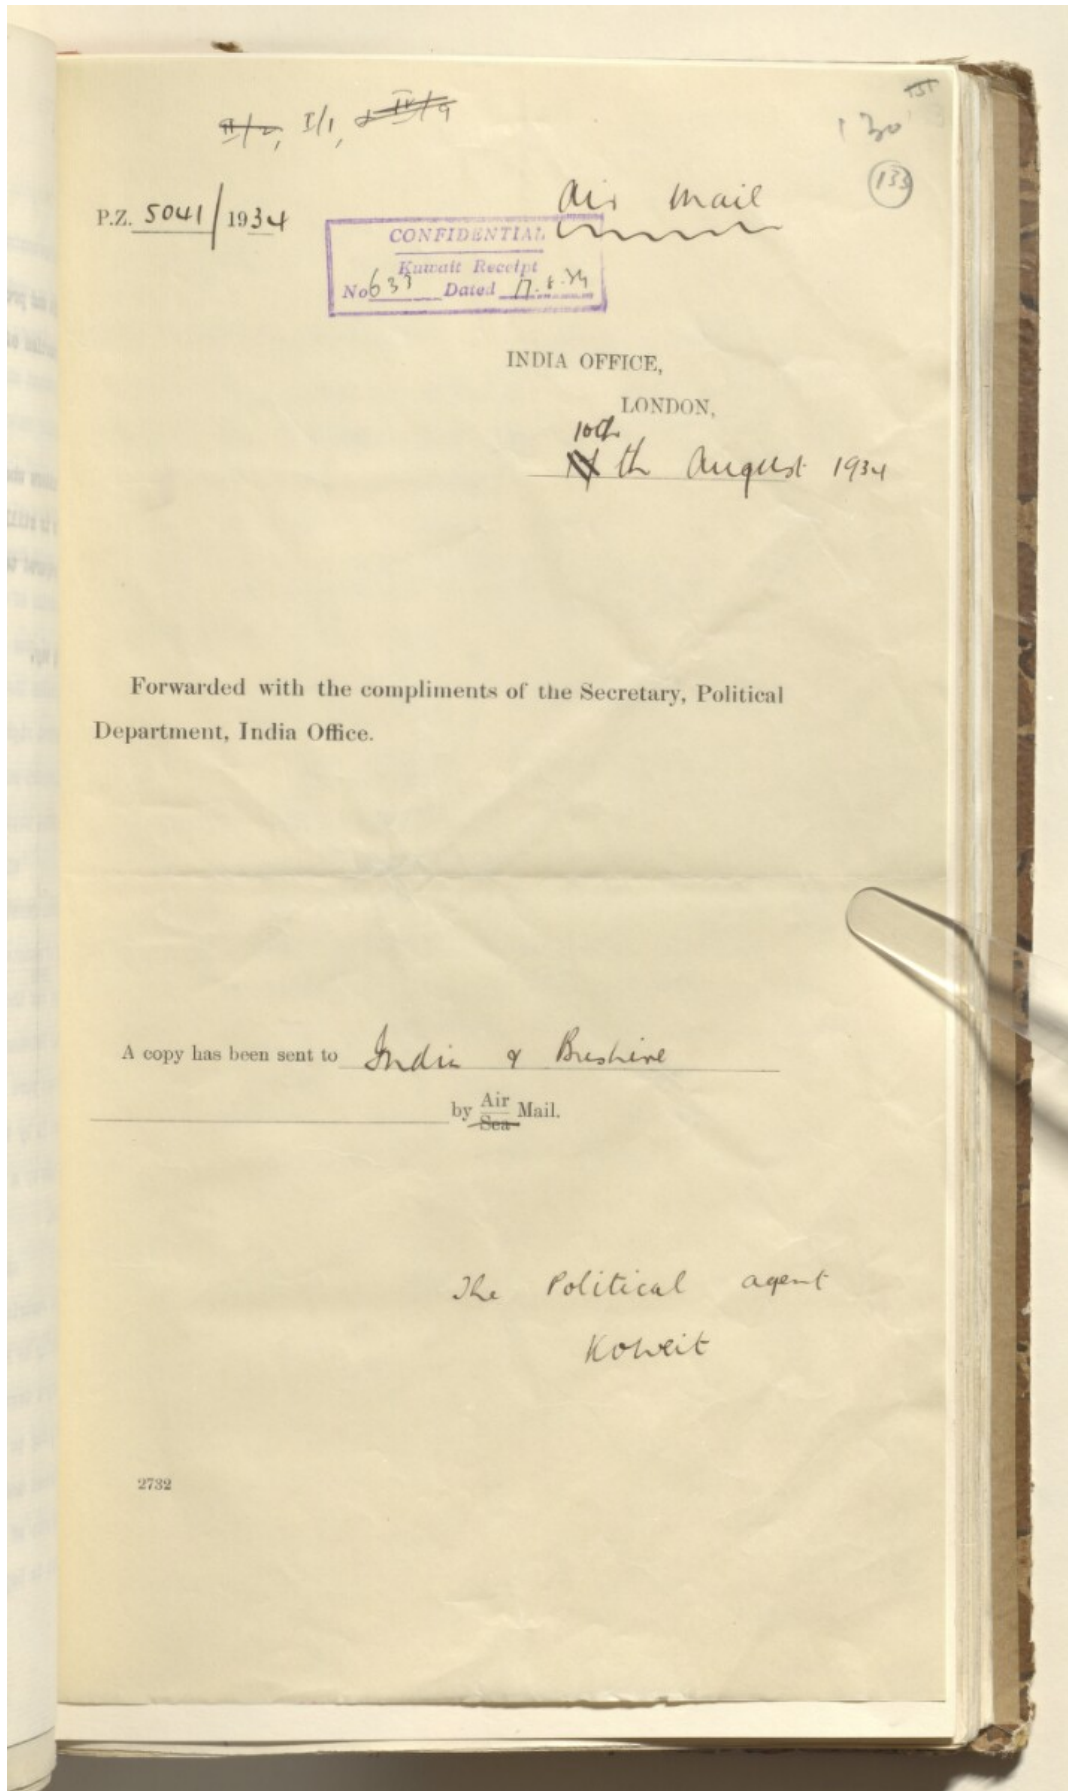 II/2, I/1, & IV/9
151
130
133
P.Z. 5041/1934
Air Mail
CONFIDENTIAL
Kuwait Receipt
No 633 Dated 17.8.34
INDIA OFFICE,
LONDON,
10th
th August 1934
Forwarded with the compliments of the Secretary, Political
Department, India Office.
A copy has been sent to India & Bushire
by Air Mail.
Sea
The Political Agent
Koweit
2732